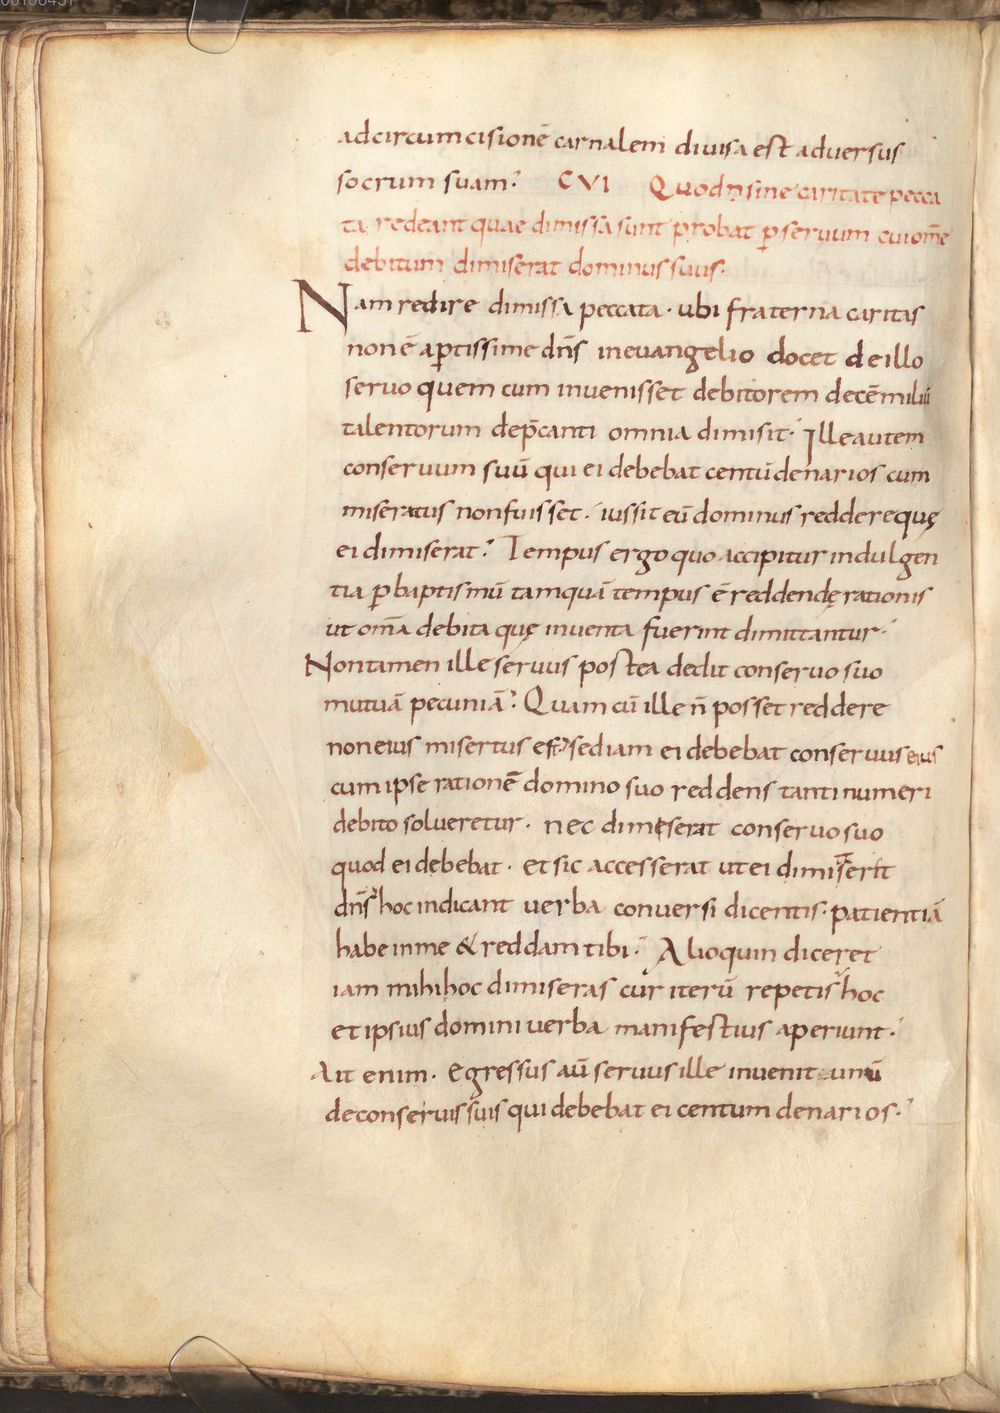 ad circumcisionē carnalem diuisa est aduersus
socrum suam. CVI Quod n̄ sine caritate pecca
ta redeant quae dimissa sunt probat ꝑ seruum cui om̄e
debitum dimiserat dominus suus.
Nam redire dimissa peccata. ubi fraterna caritas
non ē aꝑtissime dn̄s in euangelio docet de illo
seruo quem cum inuenisset debitorem decē miliū
talentorum dep̄canti omnia dimisit. Ille autem
conseruum suū qui ei debebat centū denarios cum
miseratus non fuisset. iussit eū dominus reddere quę
ei dimiserat. Tempus ergo quo accipitur indulgen
tia ꝑ baptismū tamquā tempus ē reddendę rationis
ut om̄a debita quę inuenta fuerint dimittantur.
Non tamen ille seruus postea dedit conseruo suo
mutuā pecuniā. Quam cū ille n̄ posset reddere
non eius misertus est sed iam ei debebat conseruus eius
cum ipse rationē domino suo reddens tanti numeri
debito solueretur. nec dimeserat conseruo suo
quod ei debebat. et sic accesserat ut ei dimi
dn̄s hoc indicant uerba conuersi dicentis. patientiā
habe in me & reddam tibi. Alioquin diceret
iam mihi hoc dimiseras cur iterū repetis hoc
et ipsius domini uerba manifestius aperiunt.
Ait enim. Egressus aū seruus ille inuenit unū
de conseruis suis qui debebat ei centum denarios.